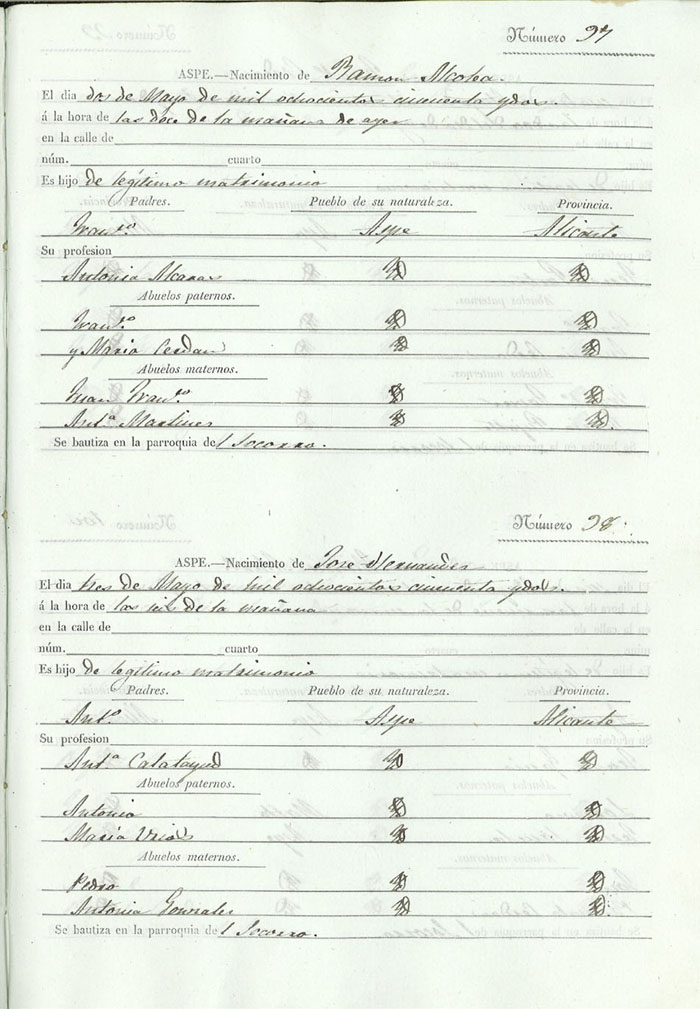 Número 97
ASPE.—Nacimiento de Ramon Alcolea.
El dia dos de Mayo de mil ochocientos cincuenta y dos.
á la hora de las doce de la mañana de ayer
en la calle de
núm. cuarto
Es hijo de legítimo matrimonio
Padres. Pueblo de su naturaleza. Provincia.
Fran.co Aspe Alicante
Su profesion
Antonia Alcaraz
Abuelos paternos.
Fran.co
y Maria Cerdan
Abuelos maternos.
Juan Fran.co
Ant.a Martinez
Se bautiza en la parroquia del Socorro.
Número 98.
ASPE.—Nacimiento de Jose Hernandez
El dia tres de Mayo de mil ochocientos cincuenta y dos.
á la hora de las de la mañana
en la calle de
núm. cuarto
Es hijo de legítimo matrimonio
Padres. Pueblo de su naturaleza. Provincia.
Ant.o Aspe Alicante
Su profesion
Ant.a Calatayud
Abuelos paternos.
Antonio
Maria
Abuelos maternos.
Pedro
Antonia Gonzalez
Se bautiza en la parroquia del Socorro.